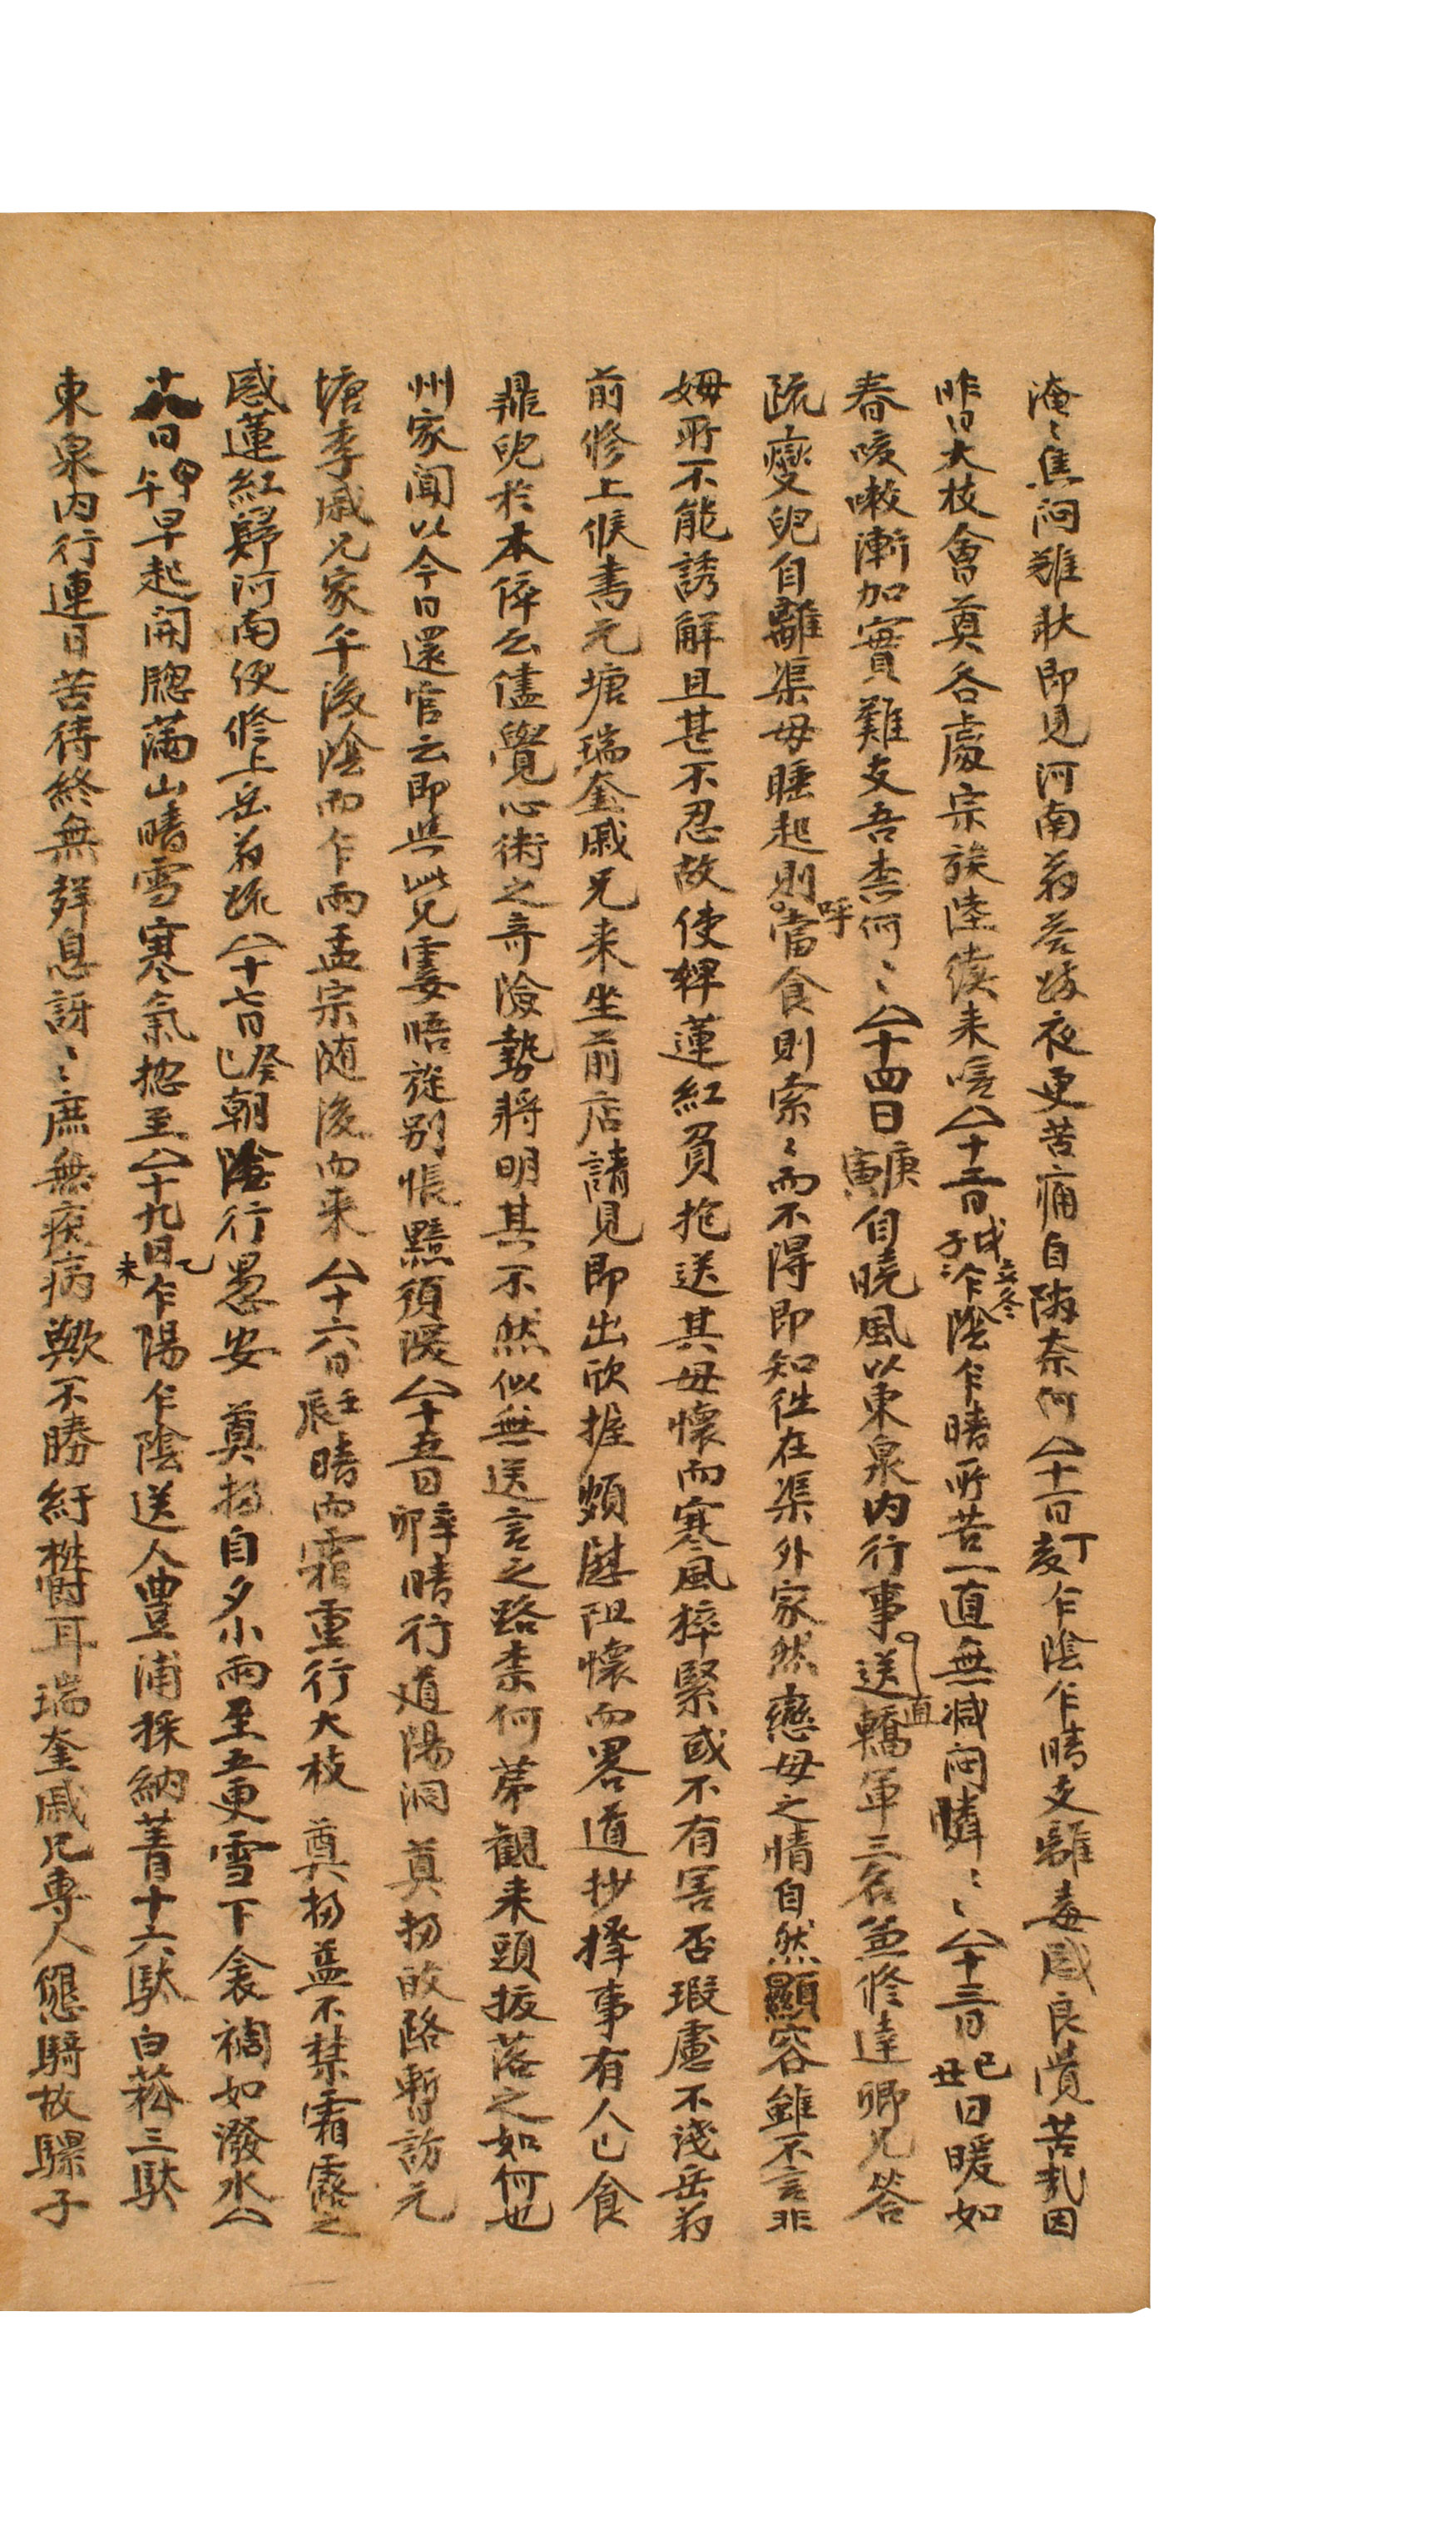 淹〻焦悶難狀即見河南翁答疏夜更苦痛自憐奈何〈十一日丁亥乍陰乍晴支離毒感良覺苦哉因
昨日大枝會奠各處宗族陸續来唁〈十二日戊子立冬乍陰乍晴所苦一直無減悶憐〻〻〈十三日己丑日暖如
春咳嗽漸加實難支吾柰何〻〈十四日庚寅自曉風以東泉內行事直送轎軍三名兼修達卿兄答
疏孌兒自離渠母睡起則呼當食則索〻而不得即知徃在渠外家然戀母之情自然顯容雖不言非
姆所不能誘解且甚不忍故使婢蓮紅負抱送其母懷而寒風猝緊或不有害否瑕慮不淺岳翁
前修上候書元塘瑞奎戚兄来坐前店請見即出欣握頗慰阻懷而畧道抄擇事有人已食
鼎兒於本倅云儘覺心術之奇險勢將明其不然似無送言之路柰何第觀来頭拔落之如何也
州家聞以今日還官云即與此兄霎晤旋别悵黯須臾〈十五日辛卯晴行道陽洞 奠拐故路暫訪元
塘李戚兄家午後陰而乍雨孟宗随後而来〈十六日壬辰晴而霜重行大枝 奠拐益不禁霜露之
感蓮紅歸河南便修上岳翁疏〈十七日癸巳朝陰行愚安 奠拐自夕小雨至五更雪下衾裯如潑水〈
十八日甲午早起開牕滿山晴雪寒氣揔至〈十九日乙未乍陽乍陰送人豊浦採納菁十六駄白菘三駄
東泉內行連日苦待終無聲息訝〻庶無疾病歟不勝紆欝耳瑞奎戚兄專人懇騎故騾子